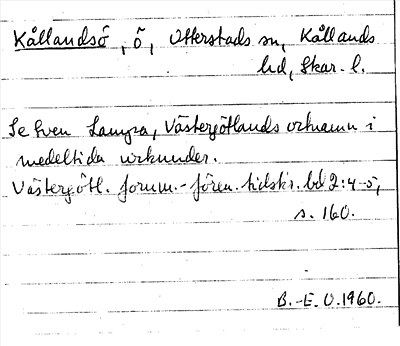 Kållandsö, ö, Otterstads sn, Kållands
hd, Skar. l.
Se Sven Lampa, Västergötlands ortnamn i
medeltida urkunder.
Västergötl. fornm.-fören. tidskr. bd 2:4-5,
s. 160.
B.-E. O. 1960.